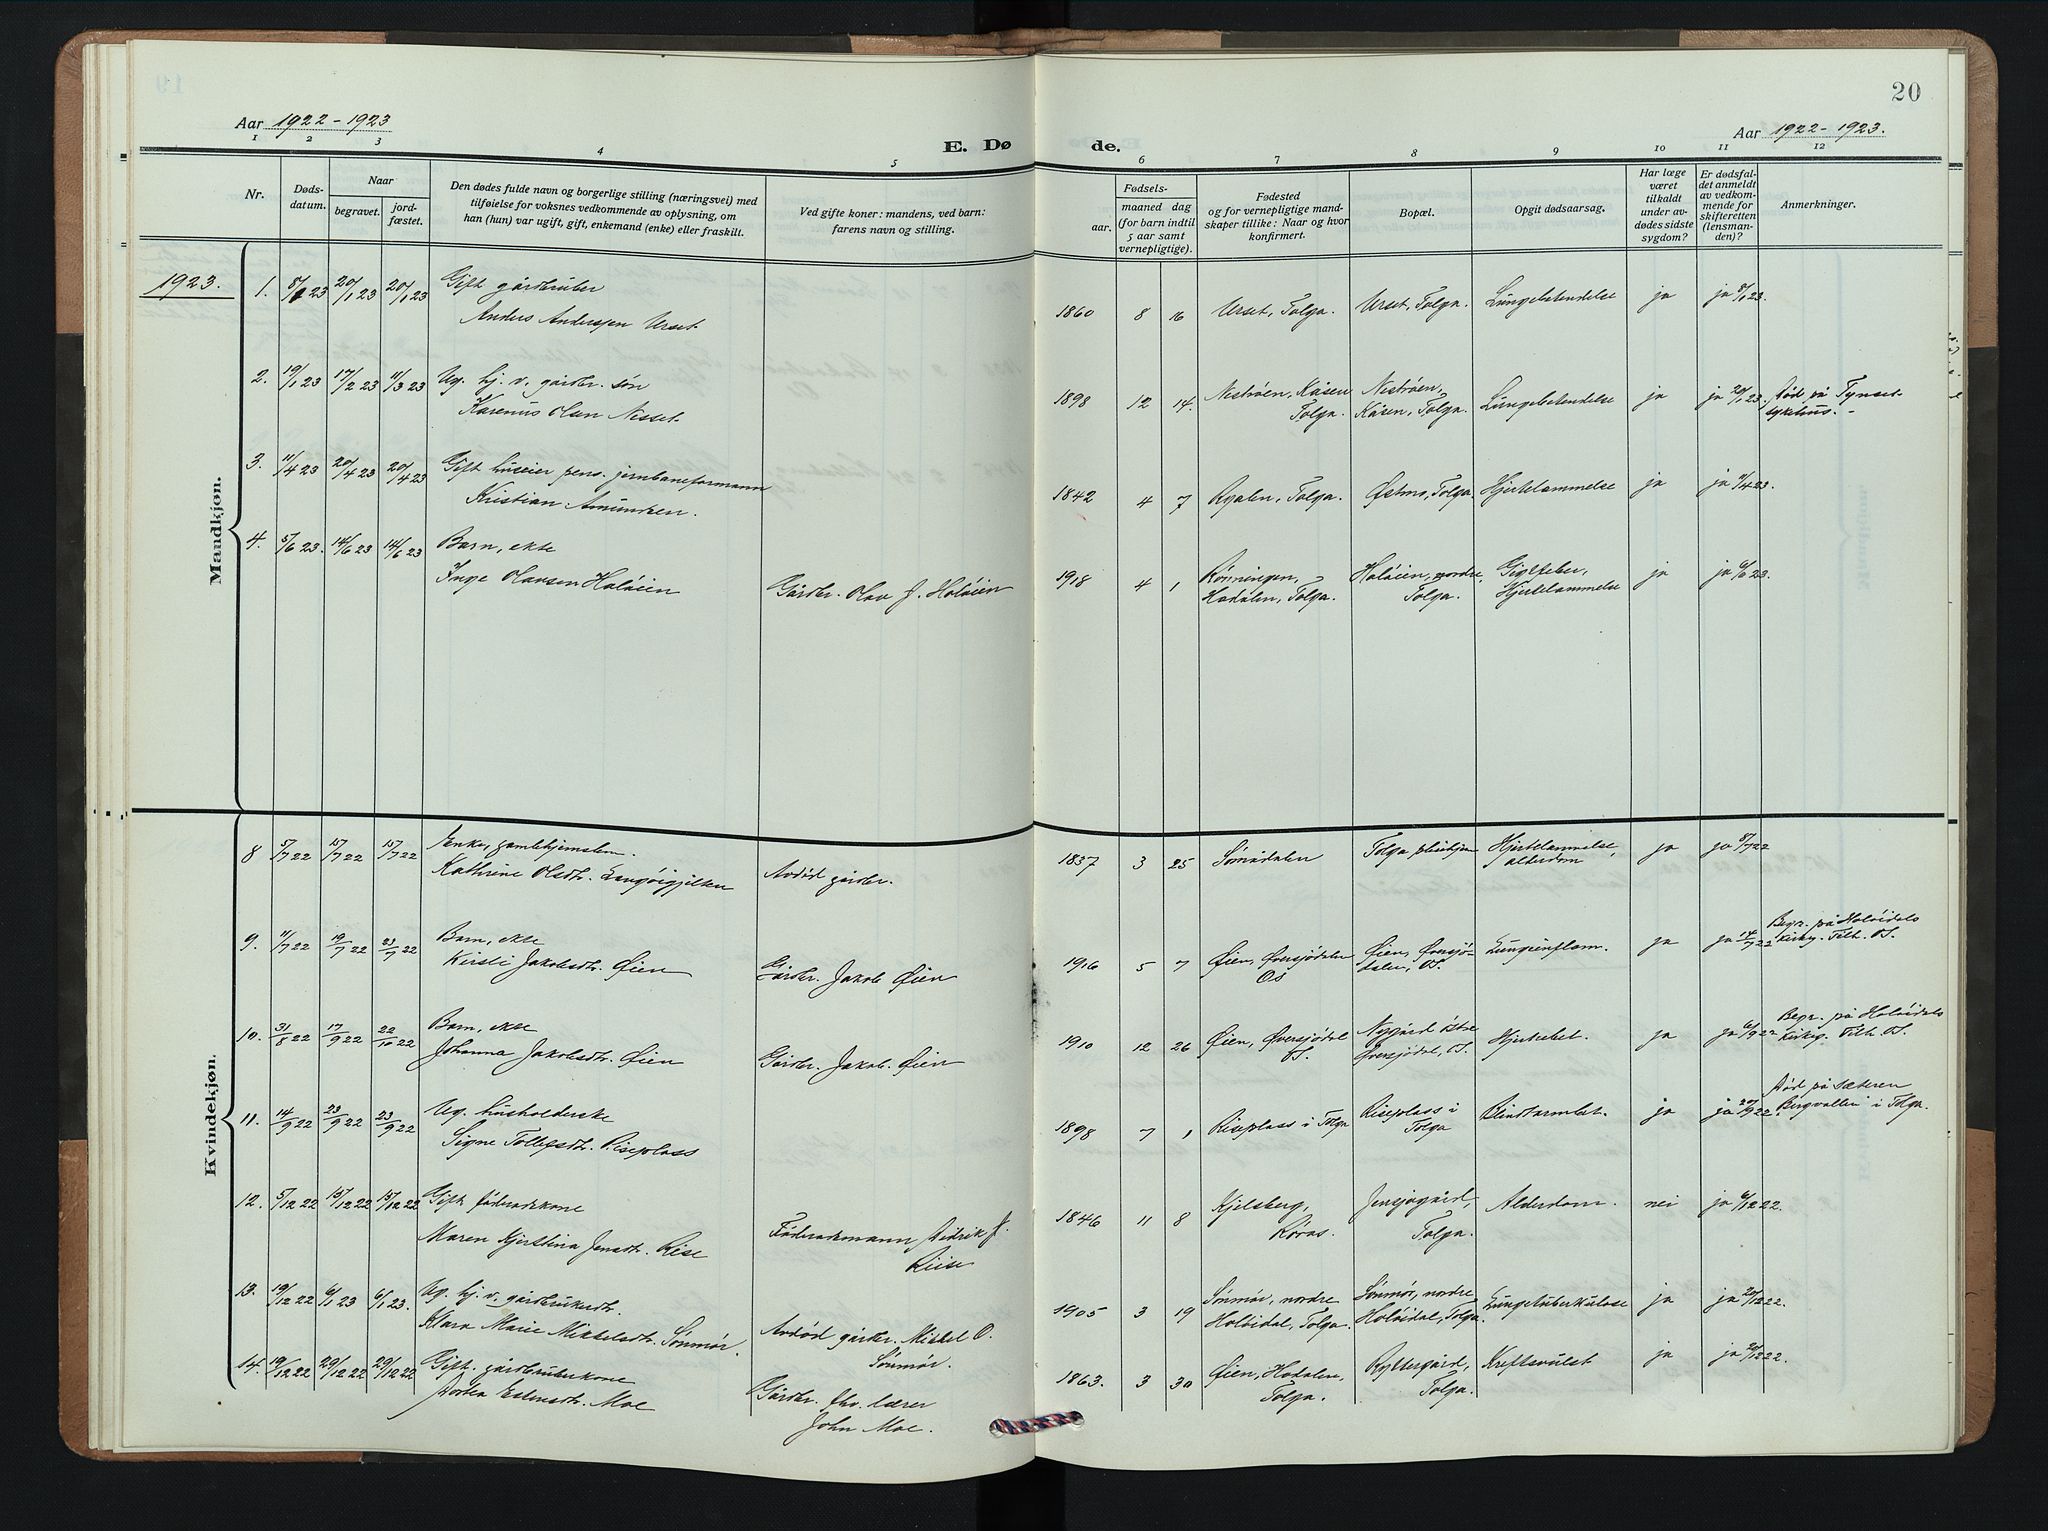 19
20
Aar 1922-1923
E. Dø
de.
Aar 1922-1923.
1 2 3 4 5 6 7 8 9 10 11 12
Nr.
Døds-
datum.
Naar
begravet.
jord-
fæstet.
Den dødes fulde navn og borgerlige stilling (næringsvei) med
tilføielse for voksnes vedkommende av oplysning, om
han (hun) var ugift, gift, enkemand (enke) eller fraskilt.
Ved gifte koner: mandens, ved barn:
farens navn og stilling.
Fødsels-
aar.
maaned dag
(for barn indtil
5 aar samt
vernepligtige).
Fødested
og for vernepligtige mand-
skaper tillike: Naar og hvor
konfirmert.
Bopæl.
Opgit dødsaarsag.
Har læge
været
tilkaldt
under av-
dødes sidste
sygdom?
Er dødsfal-
det anmeldt
av vedkom-
mende for
skifteretten
(lensman-
den)?
Anmerkninger.
Mandkjøn.
1923.
1. 8/1 23 20/1 23 20/1 23 Gift gårdbruker
Anders Andersen Urset
1860 8 16 Urset, Tolga. Urset, Tolga. Lungebetendelse ja ja 9/1 23.
2. 19/1 23 17/2 23 11/3 23 Ug. hj. v. gårdbr. søn
Karenus Olsen Nesset
1898 12 14. Nestrøen, Kåsen Tolga. Nestrøen, Kåsen, Tolga. Lungebetendelse ja ja 20/1 23. Død på Tynset
sykehus. -
3. 11/4 23 20/4 23 20/4 23 Gift huseier pens. jernbaneformann
Kristian Amundsen.
1842 4 7 Ryalen, Tolga. Østmo, Tolga. Hjertelammelse ja ja 11/4 23.
4. 5/6 23. 14/6 23 14/6 23 Barn, ekte
Inge Olavsen Holøien Gårdbr. Olav J. Holøien
1918 4 1 Rønningen, Hodalen, Tolga. Holøien, nordre, Tolga. Gigtfeber, Hjertelammelse ja ja 6/6 23.
Kvindekjøn.
8 5/7 22 15/7 22 15/7 22 Enke, gamlehjemslem.
Kathrine Olsdtr. Langøigjelten Avdød gårdbr.
1837 3 25 Sømådalen Tolga pleiehjem Hjertelammelse, alderdom ja ja 8/7 22
9. 11/7 22 19/7 22 23/7 22 Barn, ekte
Kirsti Jakobsdtr. Øien Gårdbr. Jakob Øien
1916 5 7 Øien, Øversjødalen Os Øien, Øversjø-
dalen, OS. Lungeinflam. ja ja 14/7 22 Begr. på Holøidals
kirkg. Tilh. OS.
10. 31/8 22 17/9 22 22/10 22 Barn, ekte
Johanna Jakobsdtr. Øien Gårdbr. Jakob Øien
1910 12 26 Øien, Øversjødal OS. Nygård østre Øversjødal, OS. Hjertebet. ja ja 6/9 22 Begr. på Holøidals
kirkg. Tilh. OS.
11. 14/9 22 23/9 22 23/9 22 Ug. husholderske
Signe Tollefsdtr. Riseplass
1898 7 1 Riseplass i Tolga Riseplass i Tolga Blindtarmbet. ja ja 20/9 22. Død på sæteren
Bergvollen i Tolga.
12. 5/12 22 15/12 22 15/12 22 Gift føderådskone
Maren Kjerstina Jensdtr. Rise Føderådsmann Didrik J.
Riise
1846 11 8 Kjelsberg, Røros. Jensjogård, Tolga. Alderdom. nei ja 6/12 22.
13. 19/12 22 6/1 23 6/1 23. Ug. hj. v. gårdbrukerdtr.
Klara Marie Mikkelsdtr. Sønmør. Avdød gårdbr. Mikkel O.
Sønmør.
1905 3 19 Sønmør, nordre Holøidal, Tolga. Sønmør, nordre Holøidal, Tolga. Lungetuberkulose ja ja 20/12 22.
14. 19/12 22 29/12 22 29/12 22 Gift. gårdbrukerkone
Dortea Estensdtr. Moe Gårdbr. fhv. lærer
John Moe.
1863. 3 30 Øien, Hodalen, Tolga. Ryttergård, Tolga. Kreftsvulst ja ja 20/12 22.